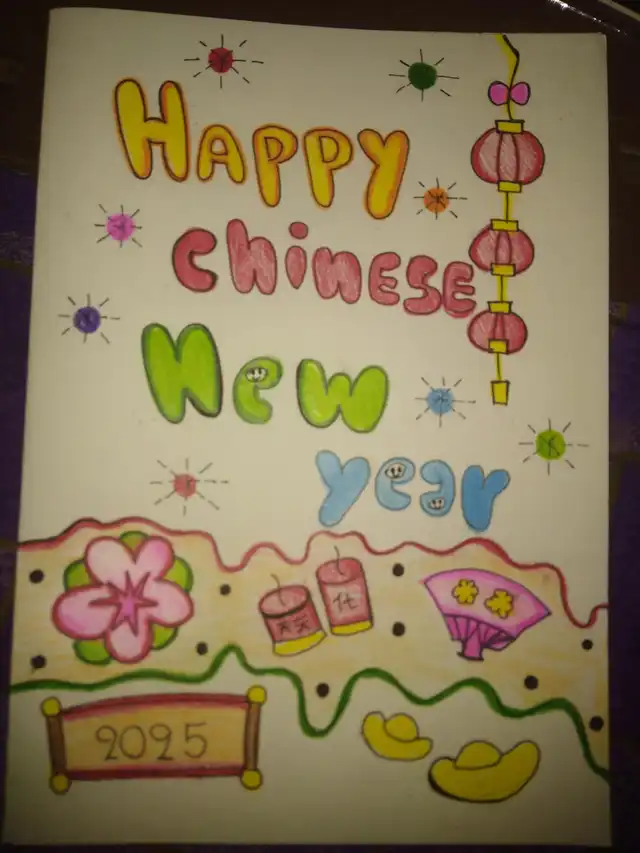 Happy
Chinese
New
year
2025